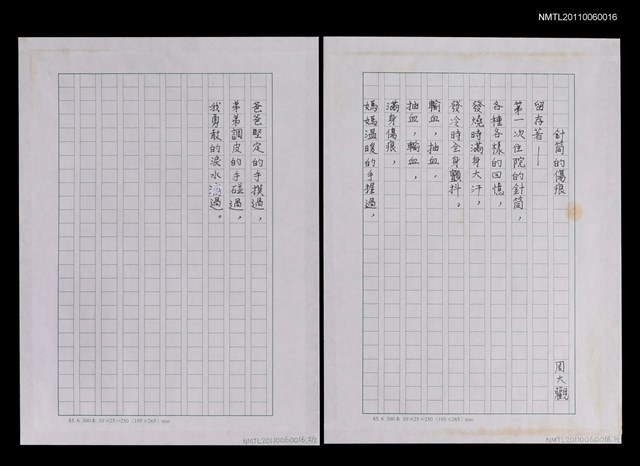 NMTL20110060016
針筒的傷痕
周大觀
留存著——
第一次住院的針筒，
各種各樣的回憶，
發燒時滿身大汗，
發冷時全身顫抖。
輸血，抽血，
抽血，輸血，
滿身傷痕，
媽媽溫暖的手握過，
85.6.500本 10×25=250 (190×265) mm
NMTL20110060016_16
爸爸堅定的手摸過，
弟弟調皮的手碰過，
我勇敢的淚水滴過。
85.6.500本 10×25=250 (190×265) mm